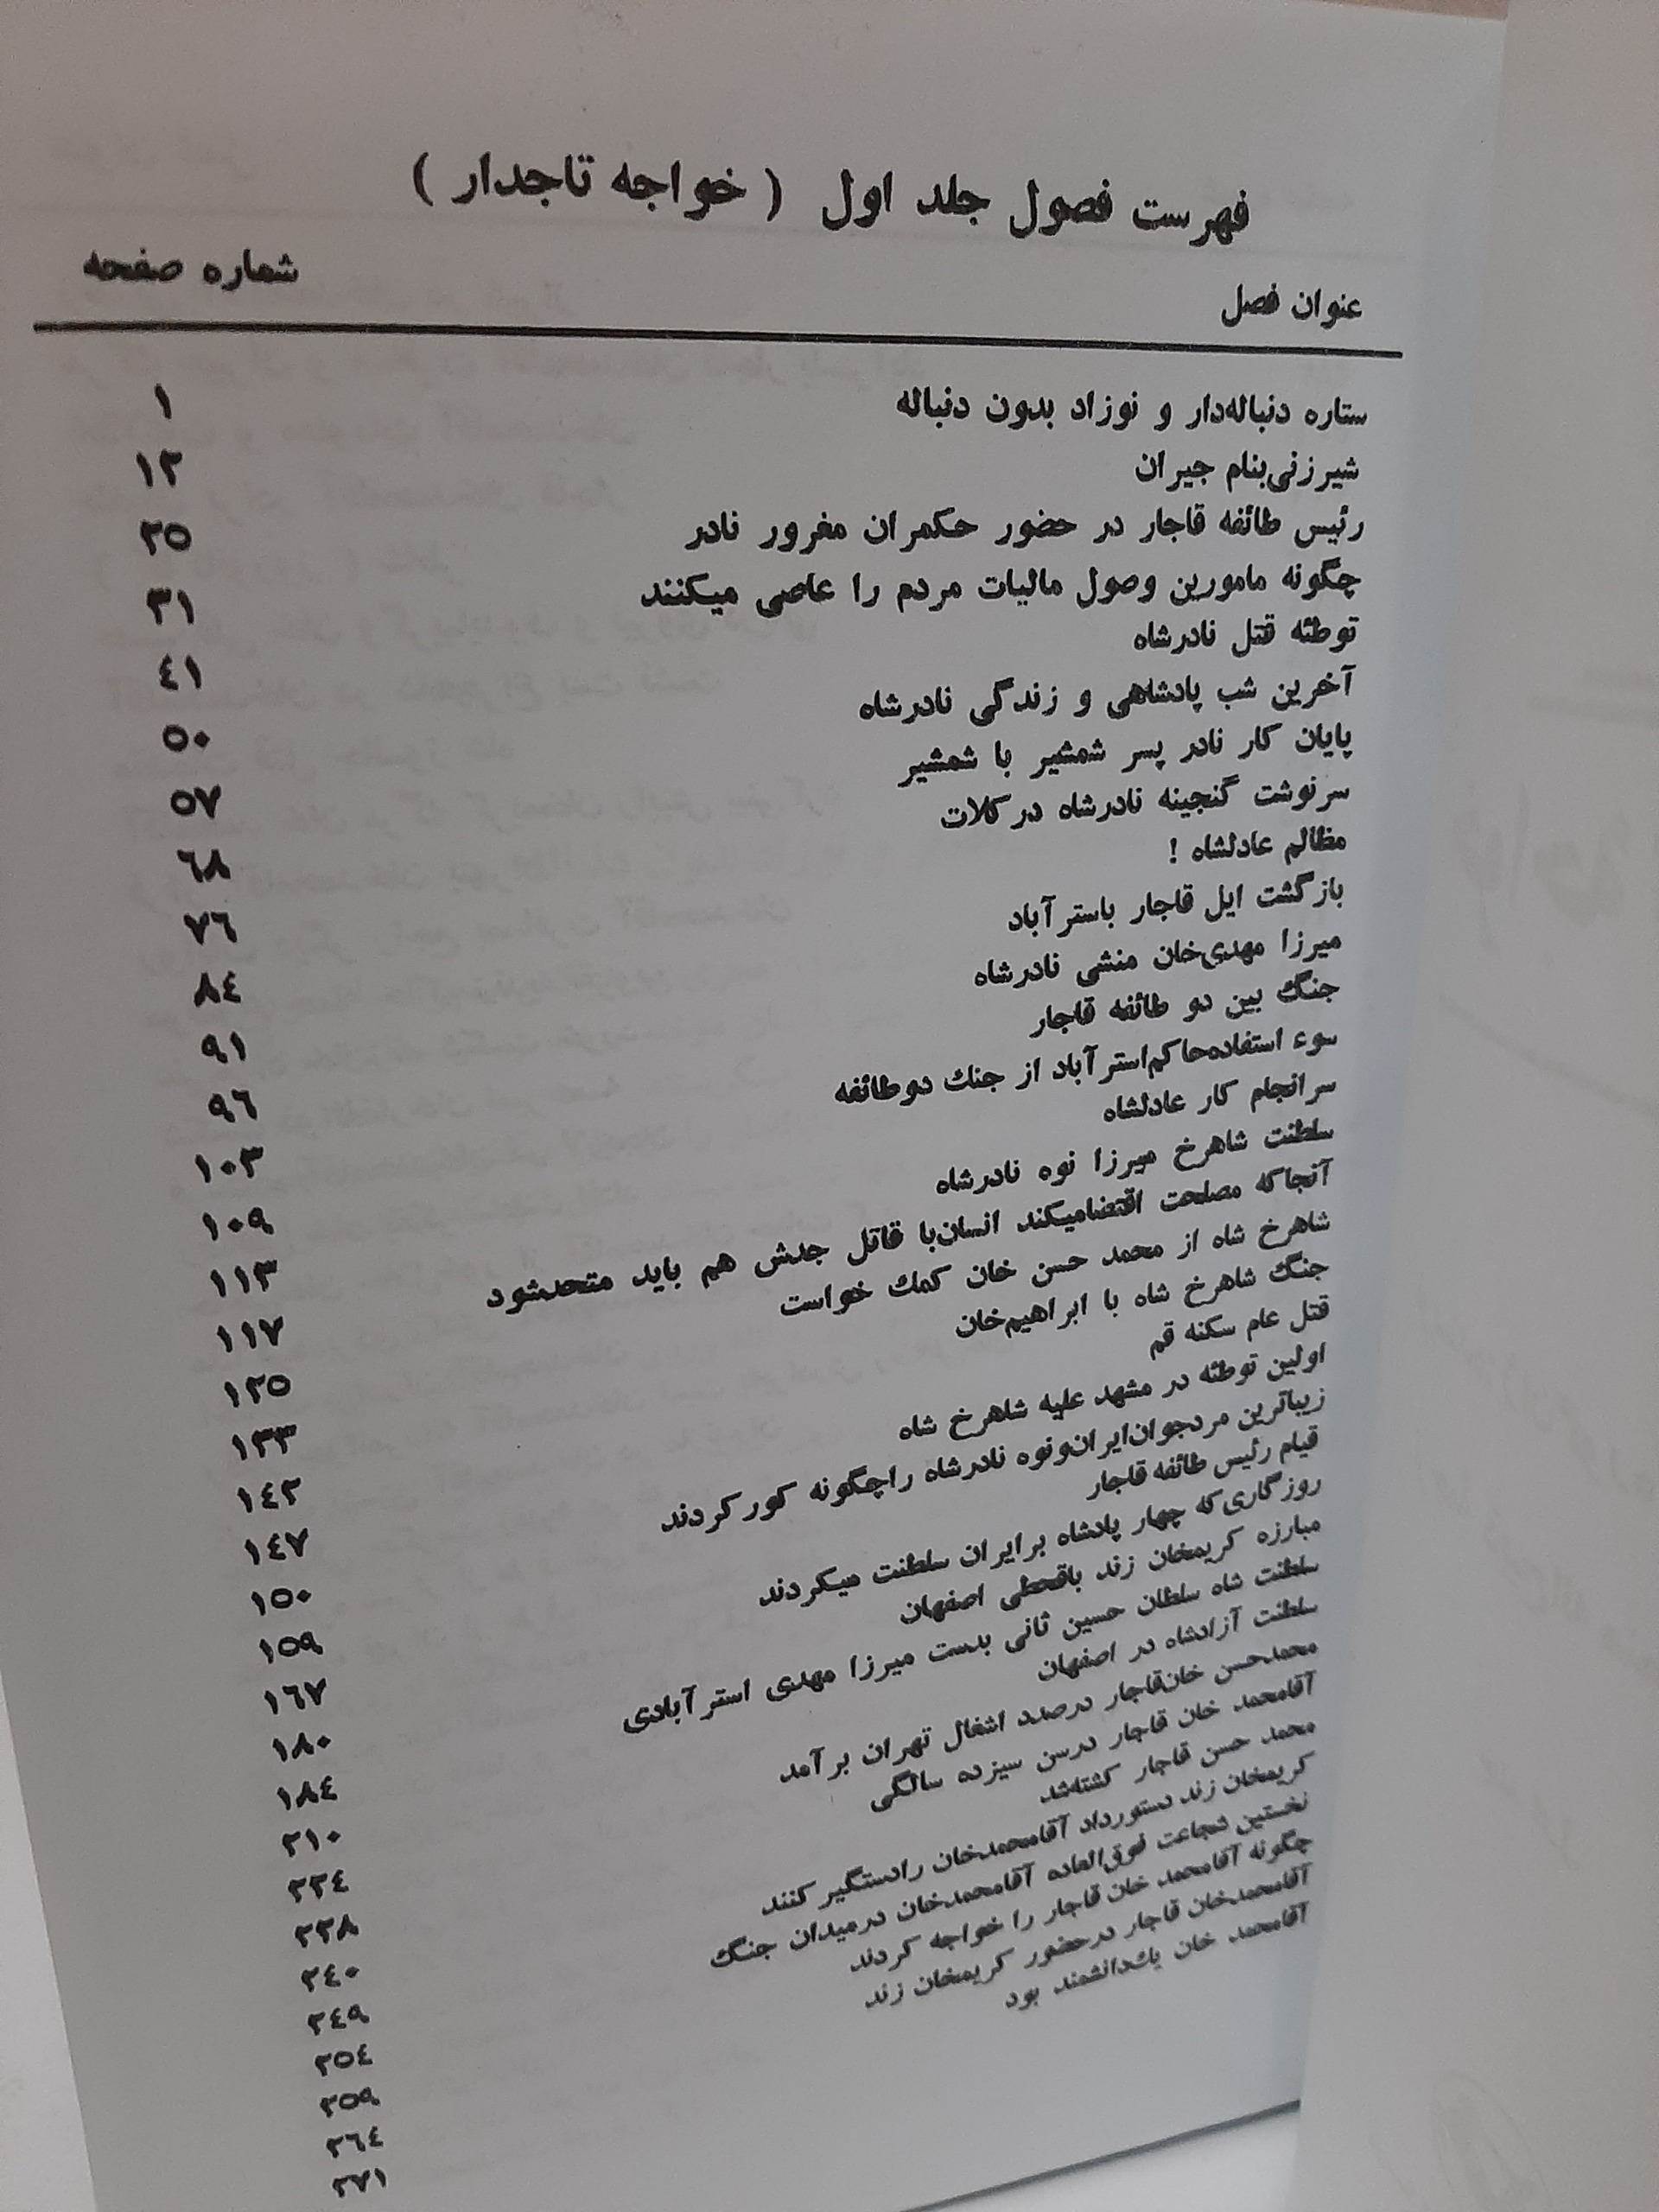 فهرست فصول جلد اول ( خواجه تاجدار )
عنوان فصل شماره صفحه
ستاره دنباله‌دار و نوزاد بدون دنباله ۱
شیرزنی‌بنام جیران ۱۲
رئیس طائفه قاجار در حضور حکمران مغرور نادر ۲۵
چگونه مامورین وصول مالیات مردم را عاصی میکنند ۳۱
توطئه قتل نادرشاه ٤۱
آخرین شب پادشاهی و زندگی نادرشاه ۵۰
پایان کار نادر پسر شمشیر با شمشیر ۵۷
سرنوشت گنجینه نادرشاه درکلات ٦۸
مظالم عادلشاه ! ۷٦
بازگشت ایل قاجار باسترآباد ۸٤
میرزا مهدی‌خان منشی نادرشاه ۹۱
جنگ بین دو طائفه قاجار ۹٦
سوء استفاده‌حاکم‌استرآباد از جنك دوطائفه ۱۰۳
سرانجام کار عادلشاه ۱۰۹
سلطنت شاهرخ میرزا نوه نادرشاه ۱۱۳
آنجاکه مصلحت اقتضامیکند انسان‌با قاتل جدش هم باید متحدشود ۱۱۷
شاهرخ شاه از محمد حسن خان کمك خواست ۱۲۵
جنگ شاهرخ شاه با ابراهیم‌خان ۱۳۳
قتل عام سکنه قم ۱٤۲
اولین توطئه در مشهد علیه شاهرخ شاه ۱٤۷
زیباترین مردجوان‌ایران‌ونوه نادرشاه راچگونه کورکردند ۱۵۰
قیام رئیس طائفه قاجار ۱۵۹
روزگاری‌که چهار پادشاه برایران سلطنت میکردند ۱٦۷
مبارزه کریمخان زند باقحطی اصفهان ۱۸۰
سلطنت شاه سلطان حسین ثانی بدست میرزا مهدی استرآبادی ۱۸٤
سلطنت آزادشاه در اصفهان ۲۱۰
محمدحسن خان‌قاجار درصدد اشغال تهران برآمد ۲۲٤
آقامحمد خان قاجار درسن سیزده سالگی ۲۲۸
محمد حسن قاجار کشته‌شد ۲٤۰
کریمخان زند دستورداد آقامحمدخان رادستگیر کنند ۲٤۹
نخستین شجاعت فوق‌العاده آقامحمدخان درمیدان جنگ ۲۵٤
چگونه آقامحمد خان قاجار را خواجه کردند ۲۵۹
آقامحمدخان قاجار درحضور کریمخان زند ۲٦٤
آقامحمد خان یك‌دانشمند بود ۲۷۱